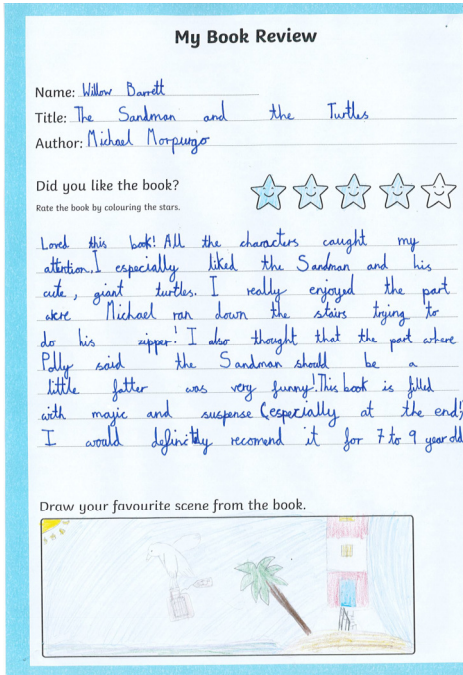 My Book Review
Name: Willow Barrett
Title: The Sandman and the Turtles
Author: Michael Morpurgo
Did you like the book?
Rate the book by colouring the stars.
Loved this book! All the characters caught my
attention. I especially liked the Sandman and his
cute, giant turtles. I really enjoyed the part
were Michael ran down the stairs trying to
do his zipper! I also thought that the part where
Polly said the Sandman should be a
little fatter was very funny! This book is filled
with magic and suspense (especially at the end)
I would definitly recomend it for 7 to 9 year old
Draw your favourite scene from the book.